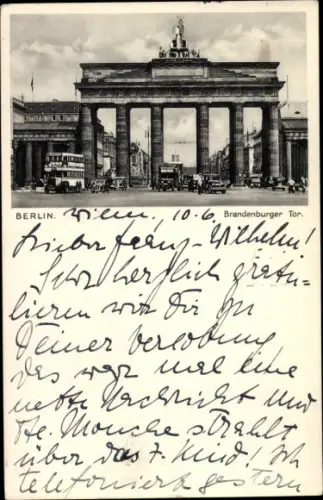 BERLIN. Brandenburger Tor.
Wien, 10.6.
Lieber Franz-Wilhelm!
Sehr herzlich gratu-
lieren wir Dir zu
Deiner Verlobung,
das war mal eine
nette Nachricht und
strahlt
über das 7. Kind! Ich
telefonierte gestern